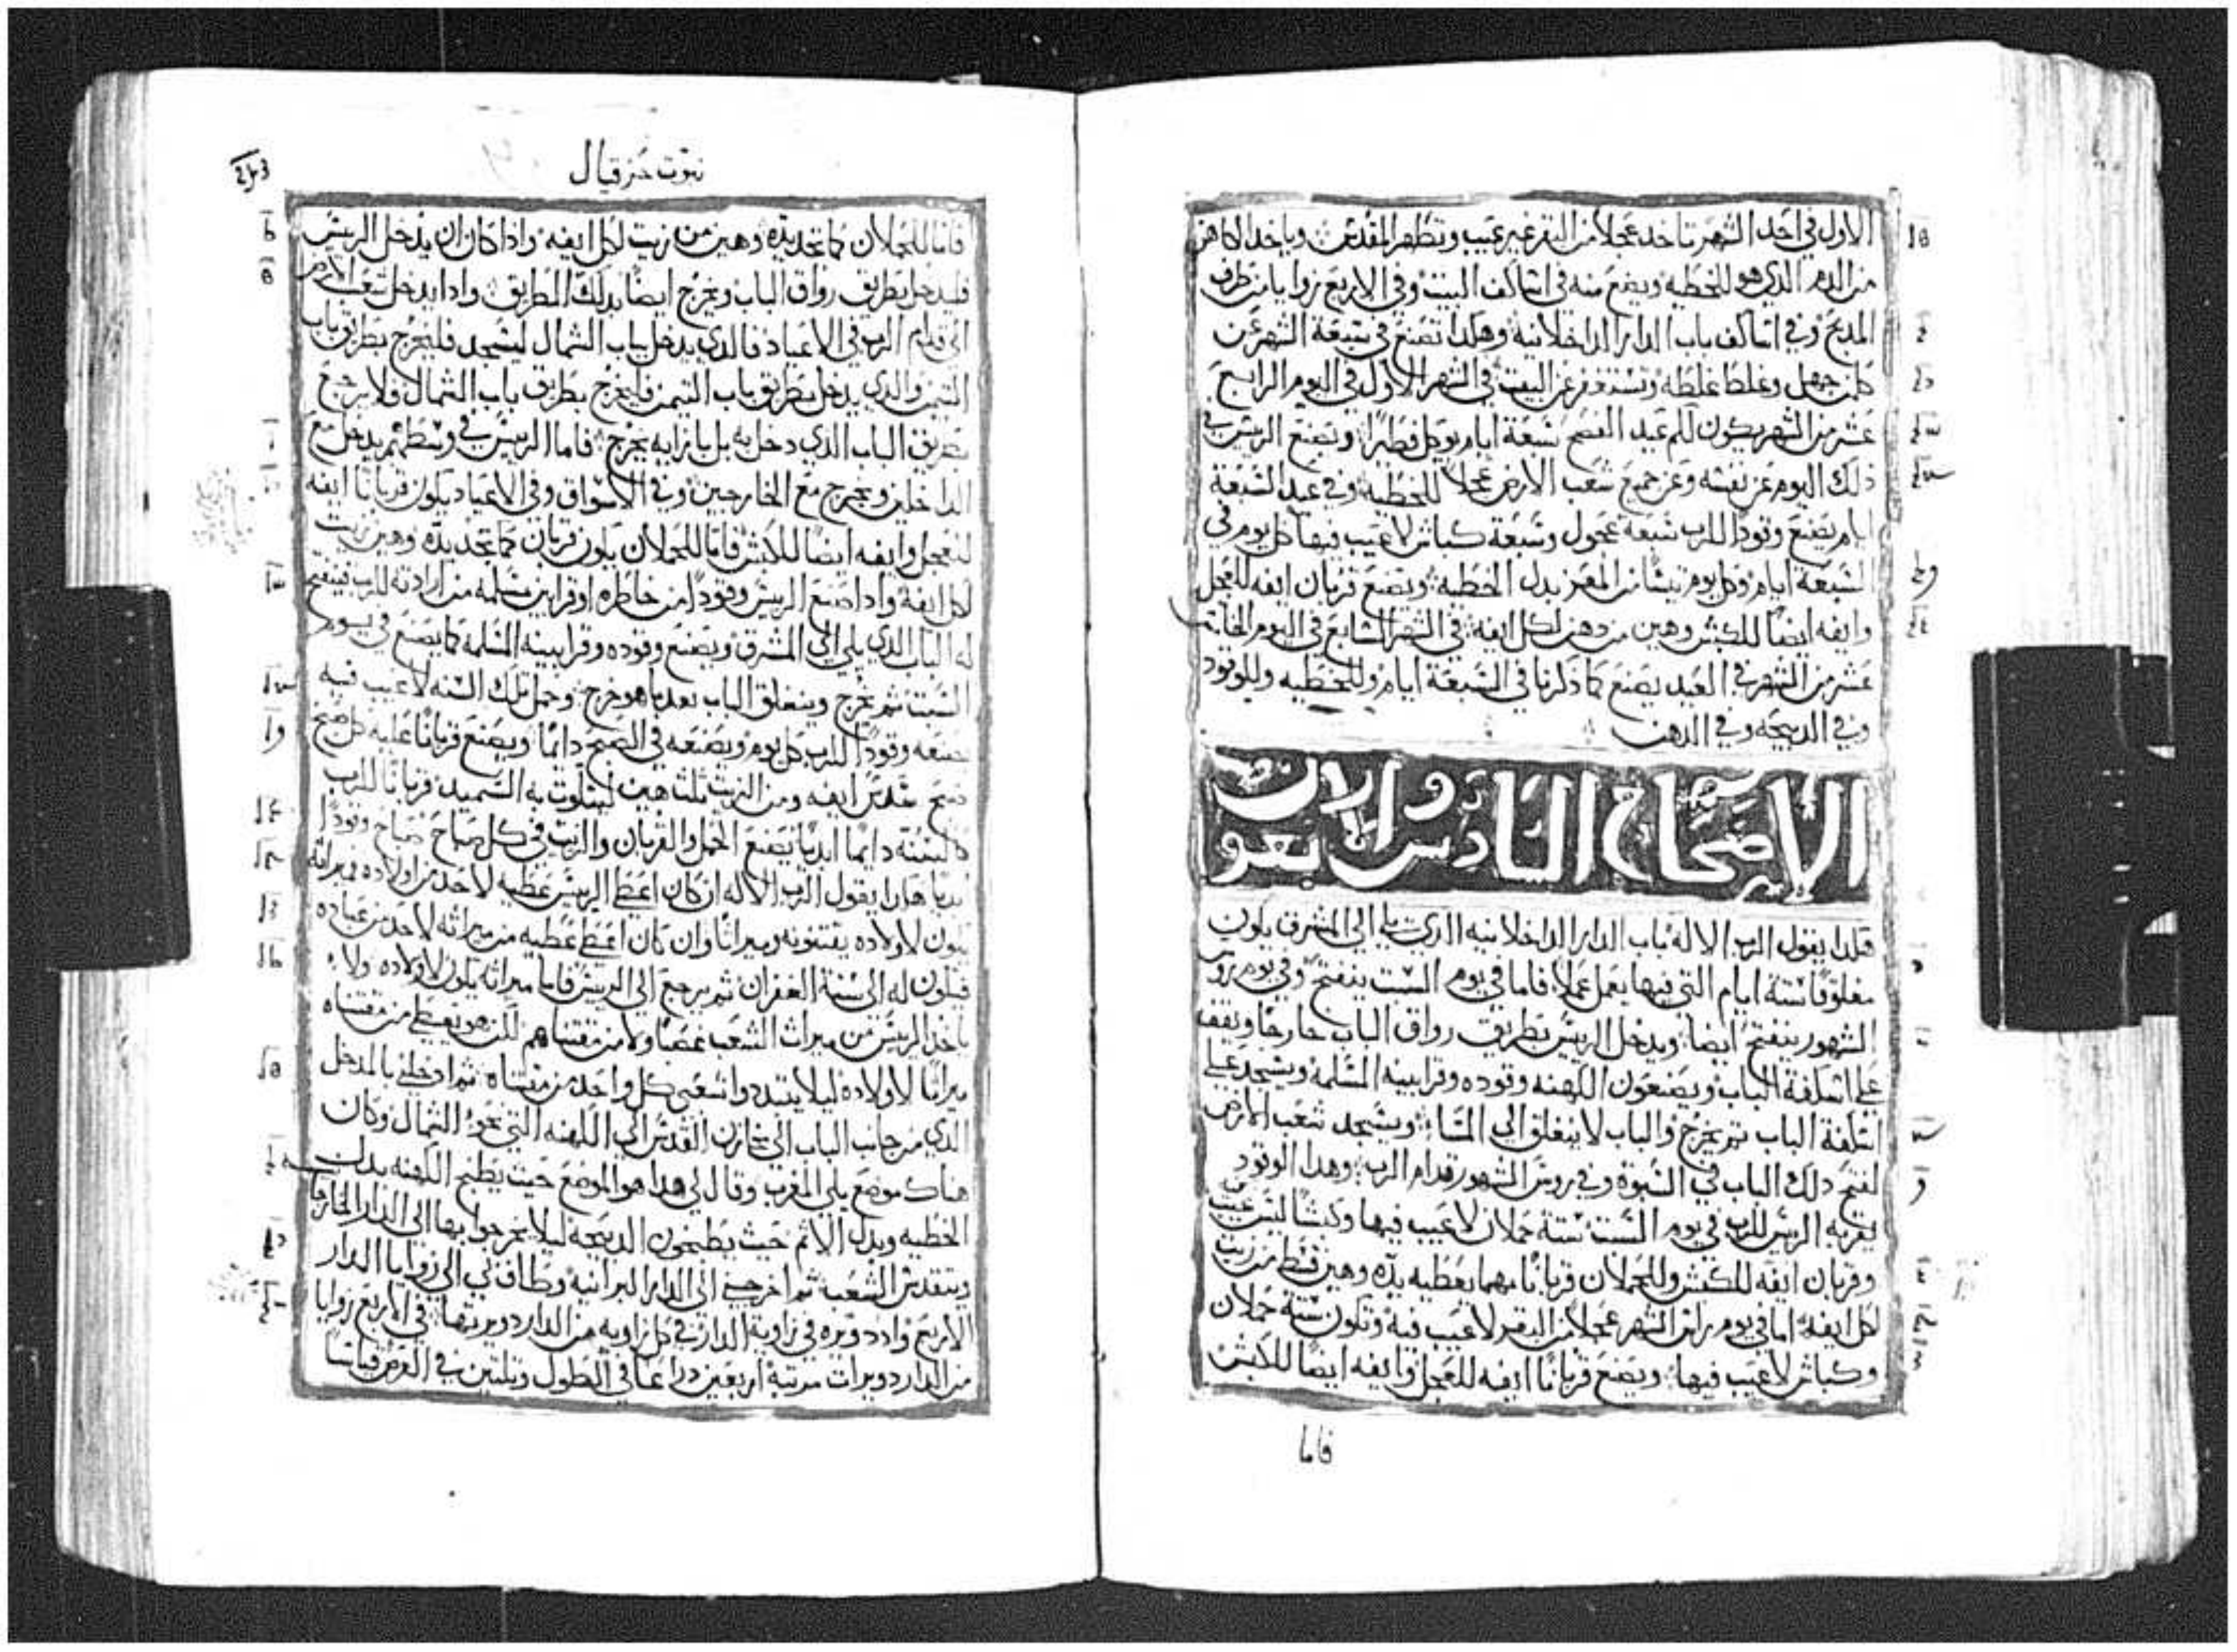 الاول في احد الشهر تاخد عجلا من البقر غير عيب وتطهر المقدس وياخد الكاهن
من الدم الدي هو للخطيه ويضع منه في اساكف البيت وفي الاربع زوايا من طرف
المدبح وفي اساكف باب الدار الداخلانيه وهكدا تصنع في سبعة الشهر عن
كلمن جهل وغلط غلطه وتستغفر عن البيت في الشهر الاول في اليوم الرابع
عشر من الشهر يكون لكم عيد الفصح سبعة ايام يوكل فطيرا ويصنع الريس في
دلك اليوم عن نفسه وعن جميع شعب الارض عجلا للخطيه وفي عيد السبعة
ايام يصنع وقودا للرب سبعة عجول وسبعة كباش لا عيب فيها كل يوم في
السبعة ايام وكل يوم تيسا من المعز بدل الخطيه ويصنع قربان ايفه للعجل
وايفه ايضا للكبش وهين من دهن لكل ايفه في الشهر السابع في اليوم الخامس
عشر من الشهر في العيد يصنع كما دكرنا في السبعة ايام وللخطيه وللوقود
وفي الدبيحه وفي الدهن
الأصحاح السادس والاربعون
هكدا يقول الرب الاله باب الدار الداخلانيه الدي يلي الى المشرق يكون
مغلوقا ستة ايام التي فيها يعمل عملا فاما في يوم السبت ينفتح وفي يوم روس
الشهور ينفتح ايضا ويدخل الريس بطريق رواق الباب خارجا ويقف
على اسكفة الباب ويصنعون الكهنه وقوده وقرابينه المسلمه ويسجد على
اسكفة الباب ثم يخرج والباب لا ينغلق الى المسا ويسجد شعب الارض
لفتح دلك الباب في السبوة وفي روس الشهور قدام الرب وهدا الوقود
يقربه الريس للرب في يوم السبت ستة حملان لا عيب فيها وكبشا ليس عيب
وقربان ايفه للكبش وللحملان قربانا مهما يعطيه يده وهين فقط من زيت
لكل ايفه اما في يوم راس الشهر عجلا من البقر لا عيب فيه وتكون ستة حملان
وكباش لا عيب فيها ويصنع قربانا ايفه للعجل وايفه ايضا للكبش
فاما
نبوت حزقيال
فاما للحملان كما تجد يده وهين من زيت لكل ايفه وادا كان ان يدخل الريس
فليدخل بطريق رواق الباب ويخرج ايضا بدلك الطريق وادا يدخل شعب الارض
الى قدام الرب في الاعياد فالدي يدخل بباب الشمال ليسجد فليخرج بطريق باب
التيمن والدي يدخل بطريق باب التيمن فليخرج بطريق باب الشمال ولا يرجع
بطريق الباب الدي دخل به بل بازايه يخرج فاما الريس في وسطهم يدخل مع
الداخلين ويخرج مع الخارجين وفي الاسواق وفي الاعياد يكون قربانا ايفه
للعجل وايفه ايضا للكبش فاما للحملان يكون قربان كما تجد يده وهين زيت
لكل ايفه وادا صنع الريس وقودا من خاطره او قرابين مسلمه من ارادته للرب فينفتح
له الباب الدي يلي الى المشرق ويصنع وقوده وقرابينه المسلمه كما يصنع في يوم
السبت ثم يخرج وينغلق الباب بعد ما هو خرج وحمل تلك السنه لا عيب فيه
يصنعه وقودا للرب كل يوم ويصنعه في الصبح دايما ويصنع قربانا عليه كل صبح
صبح سدس ايفه ومن الزيت ثلث هين ليتلوت به السميد قربانا للرب
كالسنه دايما ابديا يصنع الحمل والقربان والزيت في كل صباح صباح وقودا
ابديا هكدا يقول الرب الاله ان كان اعطى الريس عطيه لاحد من اولاده ميراثه
يكون لاولاده يقتنونه وميراثا وان كان اعطى عطيه من ميراثه لاحد من عباده
فيكون له الى سنة الغفران ثم يرجع الى الريس فاما ميراثه يكون لاولاده ولا
ياخد الريس من ميراث الشعب غصبا ولا من مقتناهم لكن هو يعطي من مقتناه
ميراثا لاولاده ليلا يتبدد واشعبي كل واحد من مقتناه ثم ادخلني بالمدخل
الدي من جانب الباب الى مخازن القدس الى الكهنه التي نحو الشمال وكان
هناك موضع يلي المغرب وقال لي هدا هو الموضع حيث يطبخ الكهنه بدل
الخطيه وبدل الاثم حيث يطبخون الدبيحه ليلا يخرجوا بها الى الدار الخارجا
ويتقدس الشعب ثم اخرجني الى الدار البرانيه وطاف بي الى زوايا الدار
الاربع وادا دويره في زاوية الدار في كل زاويه من الدار دويرتها في الاربع زوايا
من الدار دويرات مرتبة اربعين دراعا في الطول وتلتين في العرض قياسا